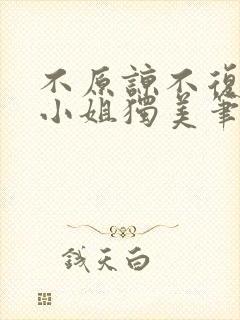 不原諒不復
小姐獨美筆
錢天白